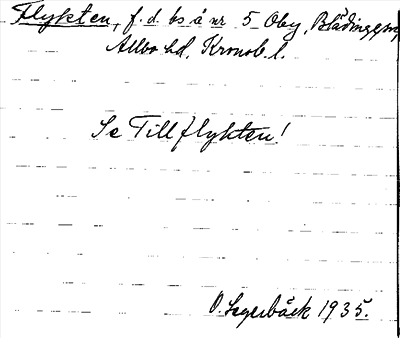 Flykten, f. d. bs å nr 5 Oby, Blädinge sn,
Allbo hd, Kronob. l.
Se Tillflykten!
O. Lagerbäck 1935.